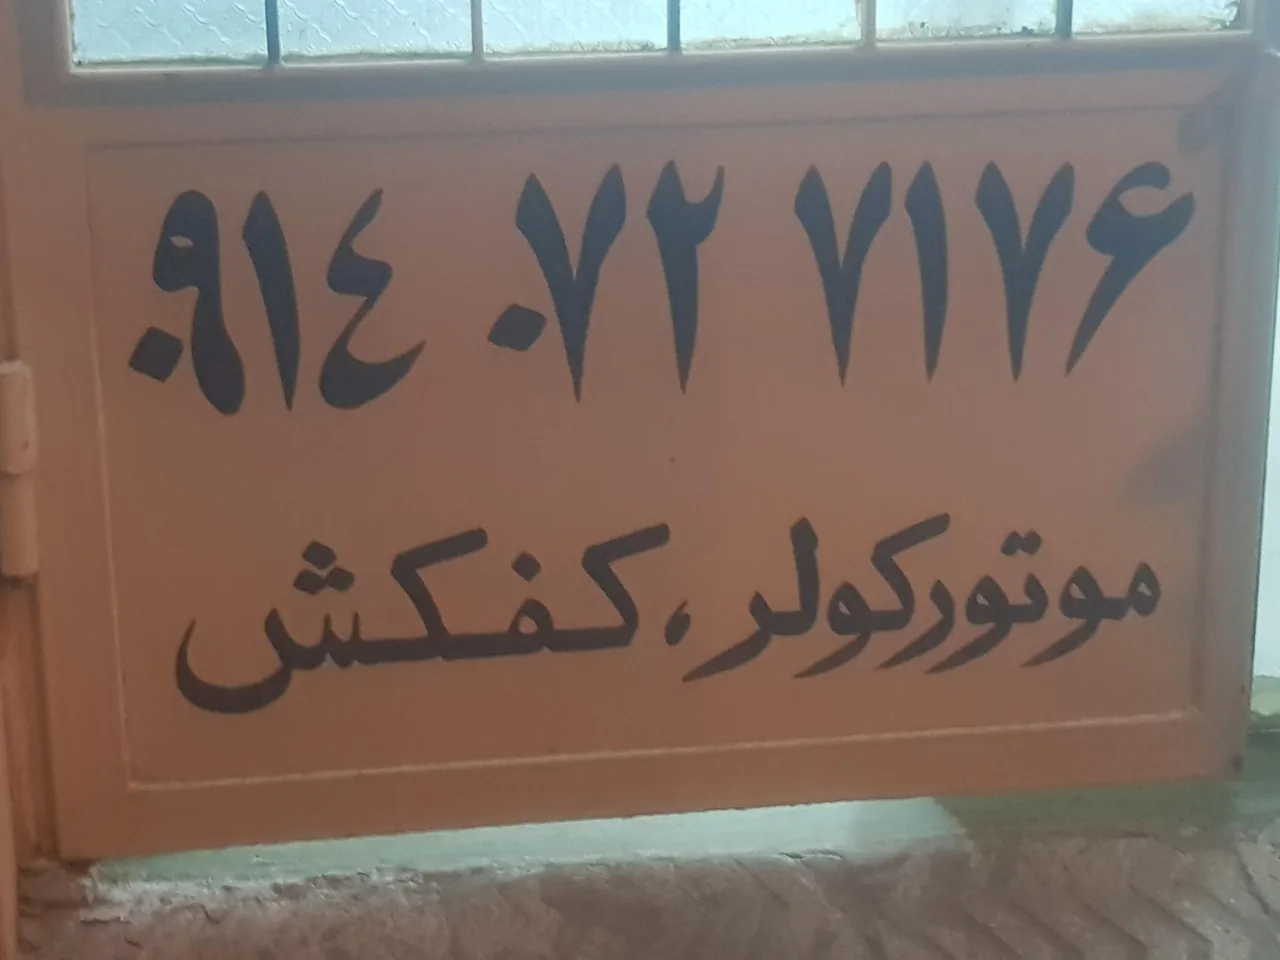 ۰۹۱٤ ۰۷۲ ۷۱۷۶
موتورکولر، کفکش